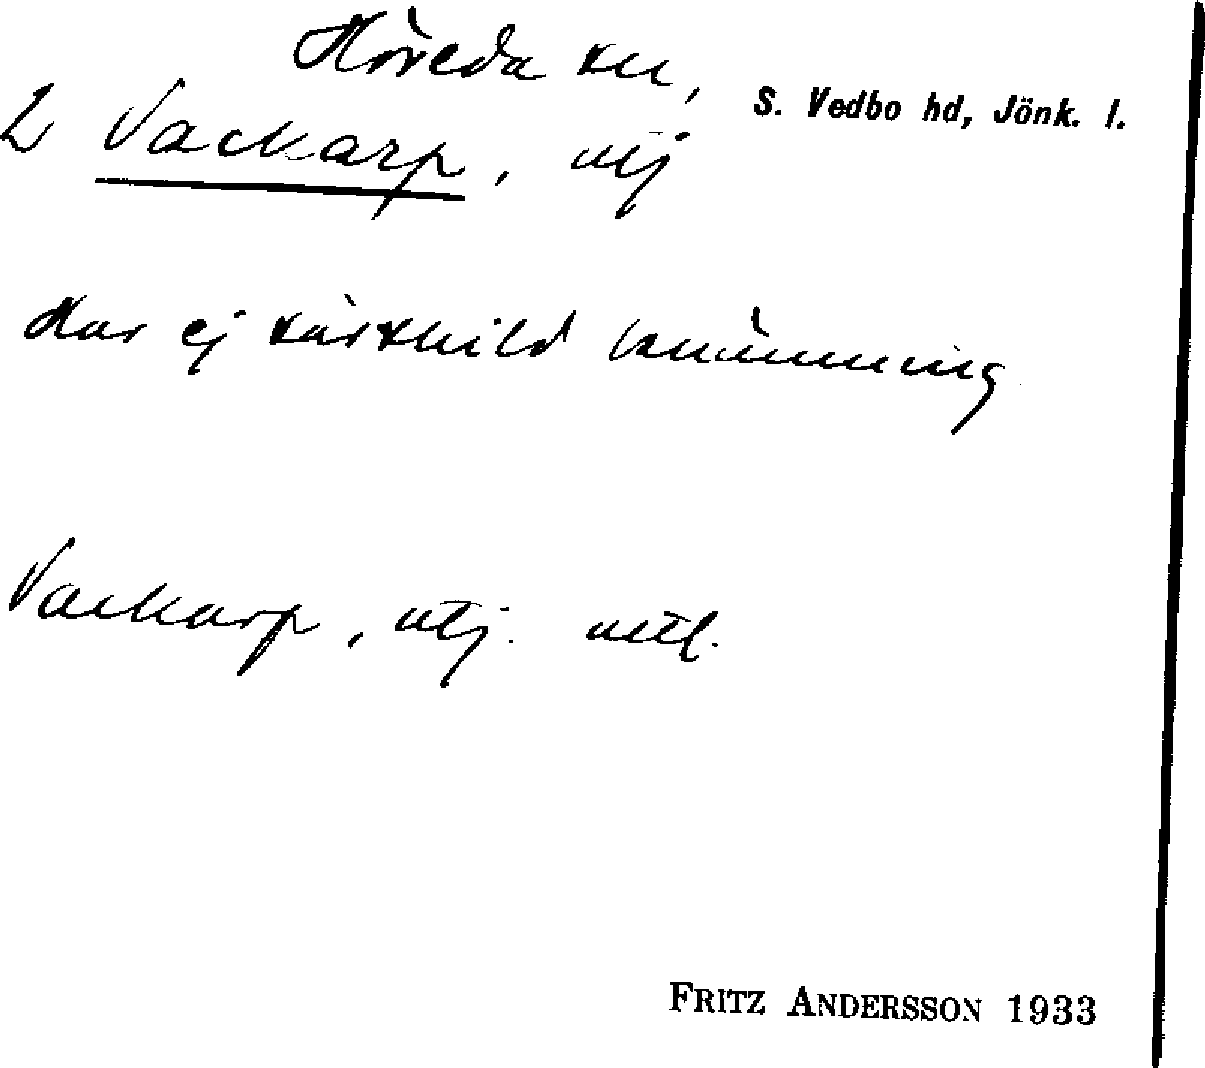 Höreda sn,
S. Vedbo hd, Jönk. l.
2 Vackarp, utj
Har ej särskild benämning
Vackarp, utj. uttl.
FRITZ ANDERSSON 1933